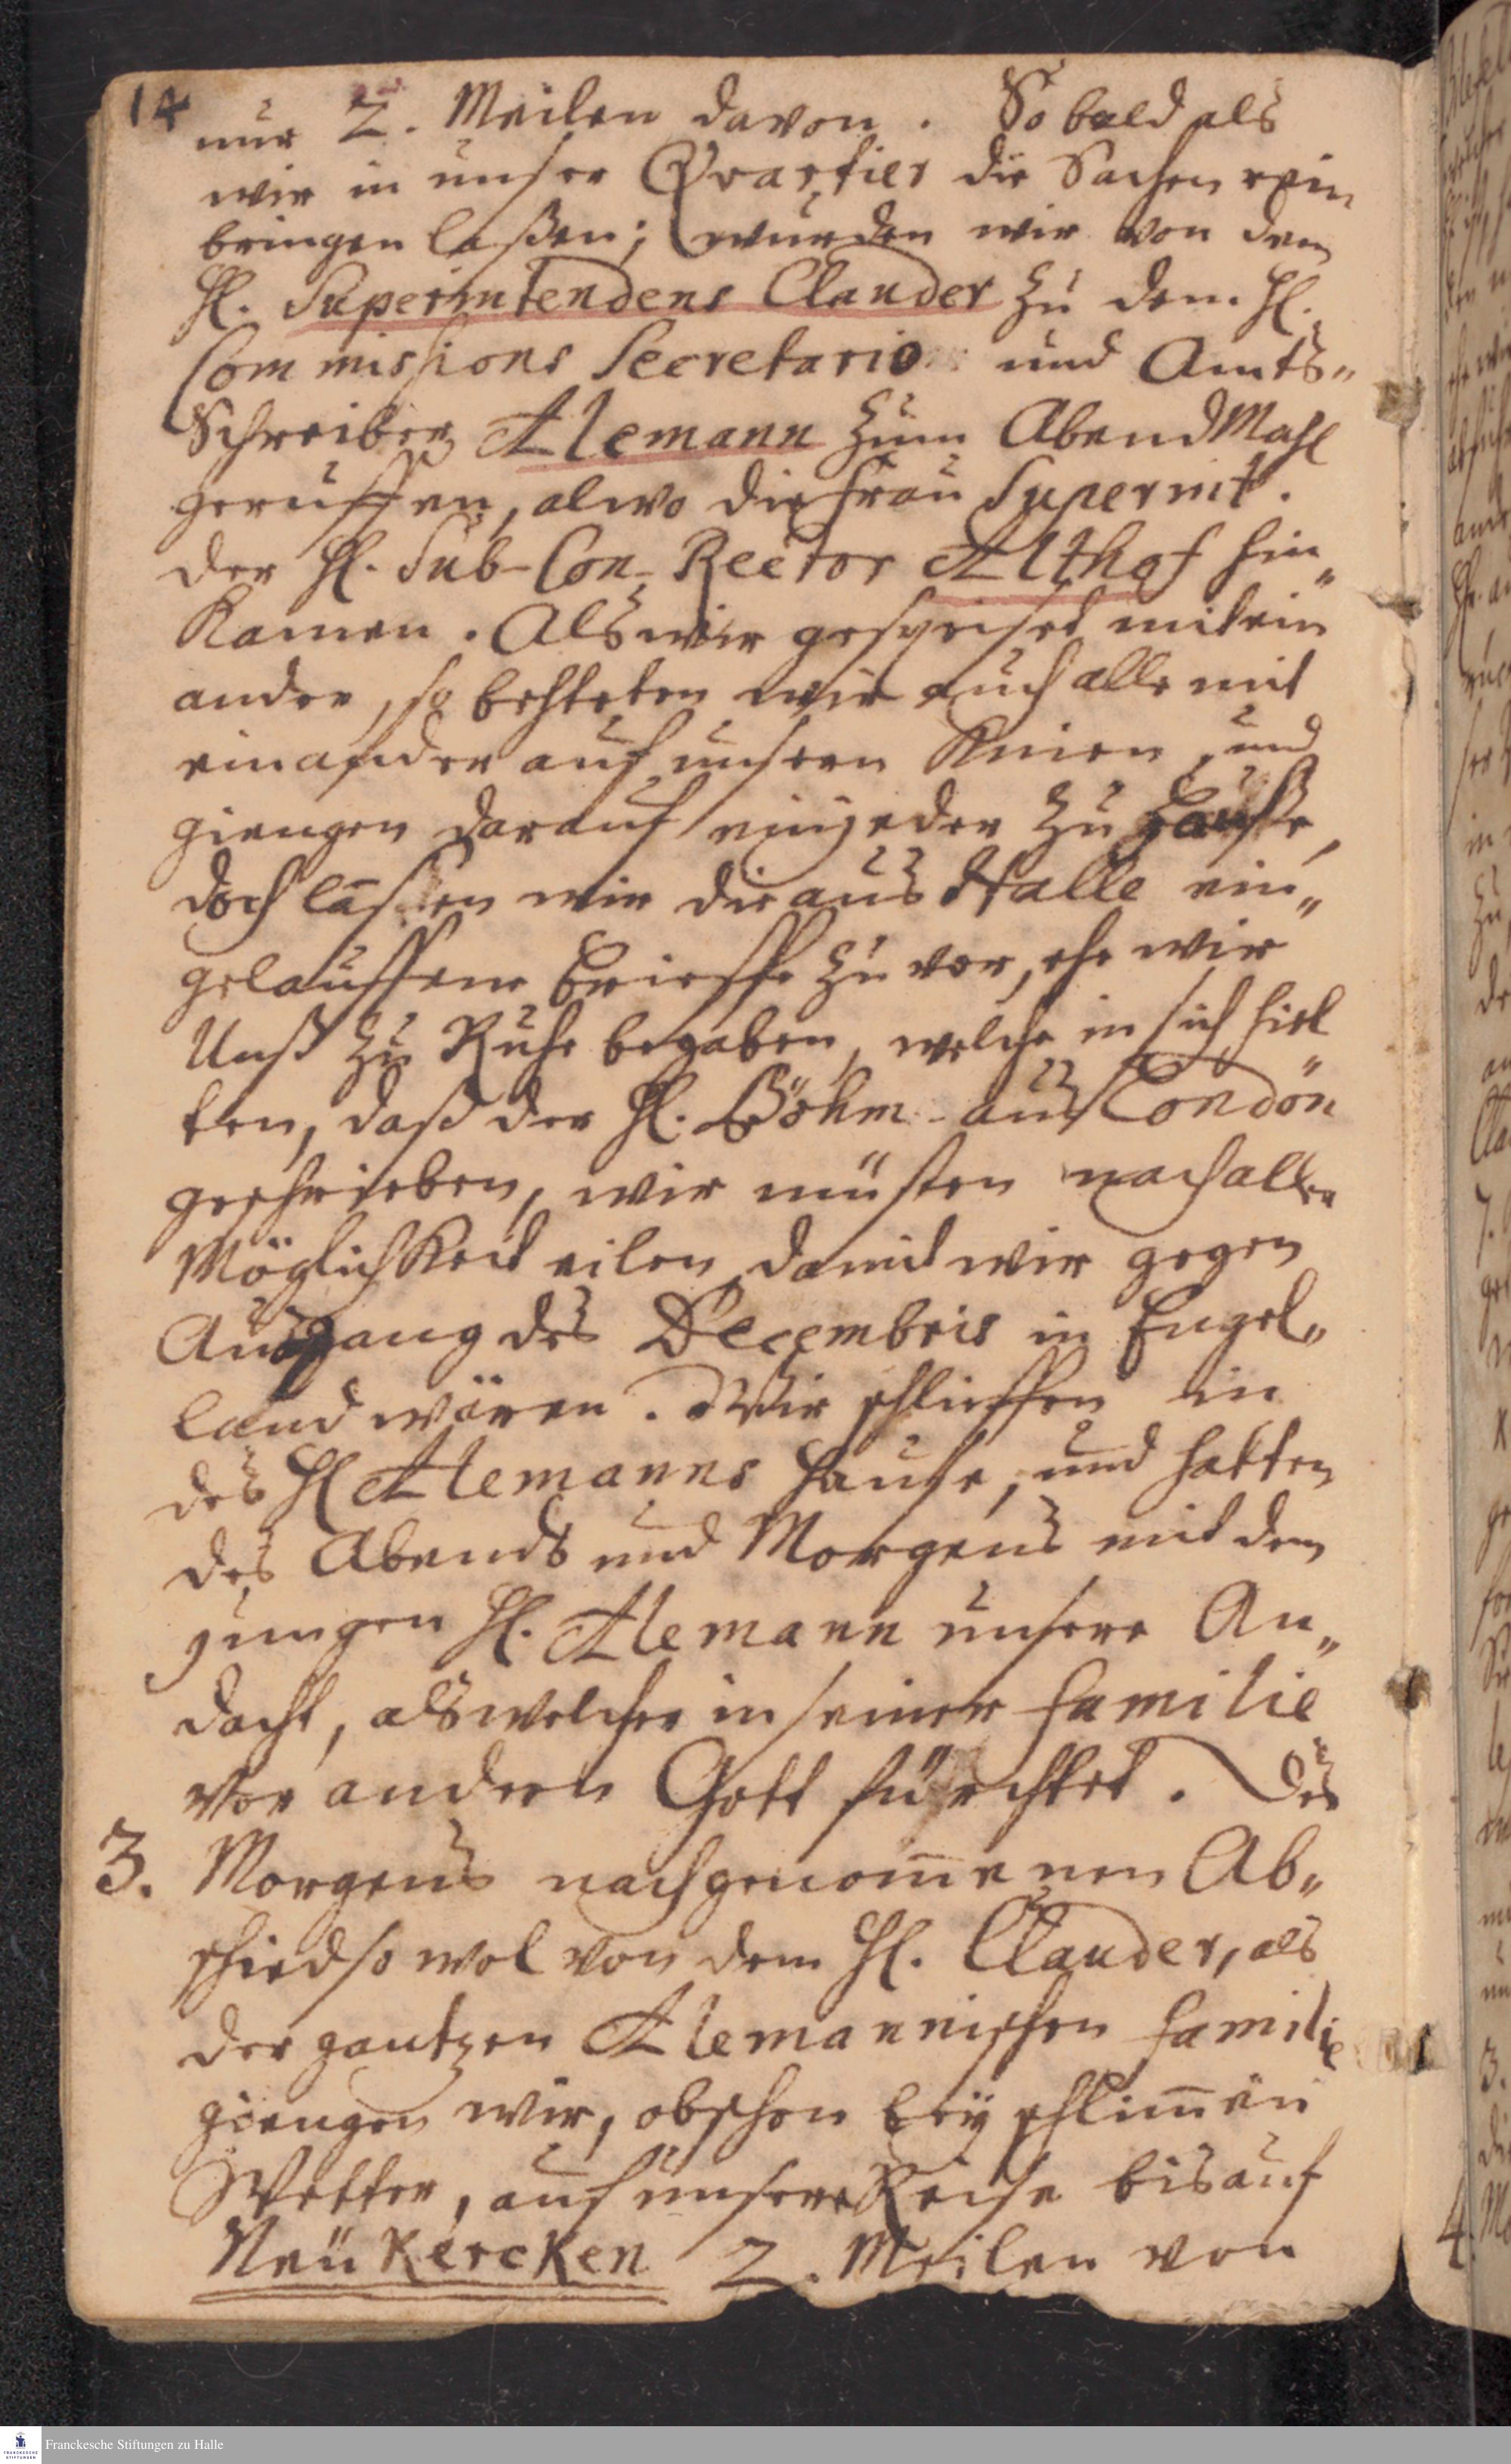 14
nur 2. Meilen davon. So bald als
wir in unser Qvartier die Sachen rein
bringen laßen; wurden wir von dem
H. Superintendens Clauder zu dem H.
Commissions Secretario und Amts„
Schreiber Alemann zum AbendMahl
geruffen, alwo die Frau Superint.
der H. Sub-Con-Rector Althof hin„
Kamen. Als wir gespeiset mit ein
ander, so behteten wir auch alle mit
einander auf unsern Knien, und
giengen darauf ein jeder zu Hauße,
doch lasen wir die aus Halle ein„
gelauffene Brieffe zu vor, ehe wir
Unß zu Ruhe begaben, welche in sich hiel„
ten, daß der H. Böhm aus London
geschrieben, wir müsten nach aller
Möglichkeit eilen, damit wir gegen
Ausgang des Decembris in Engel„
land wären. Wir schlieffen in
des H Alemanns Hause, und hatten
des Abends und Morgens mit dem
jungen H. Alemann unsere An„
dacht, als welcher in seiner Familie
vor andern Gott fürchtet. Des
3. Morgens nach genom̅enen Ab„
schied so wol von dem H. Clauder, als
der gantzen Alemannischen Familie
giengen wir, obschon bey schlim̅en
Wetter, auf unsere Reise bis auf
Neu Kercken 2. Meilen von
Franckesche Stiftungen zu Halle